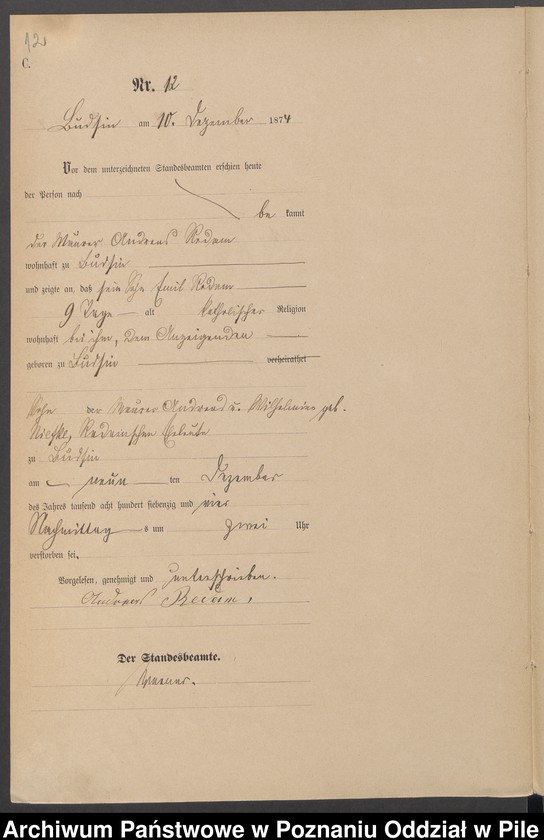 12
C.
Nr. 12
Budsin am 10. Dezember 1874
Vor dem unterzeichneten Standesbeamten erschien heute
der Person nach
be kannt
der Maurer Andreas Redem
wohnhaft zu Budsin
und zeigte an, daß sein Sohn Emil Redem
9 Tage alt katholischer Religion
wohnhaft bei ihm, dem Anzeigenden
geboren zu Budsin verheirathet
Sohn der Maurer Andreas u. Wilhelmine geb.
Eheleute
zu Budsin
am neun ten Dezember
des Jahres tausend acht hundert siebenzig und vier
Nachmittag s um zwei Uhr
verstorben sei.
Vorgelesen, genehmigt und unterschrieben.
Andreas
Der Standesbeamte.
Archiwum Państwowe w Poznaniu Oddział w Pile